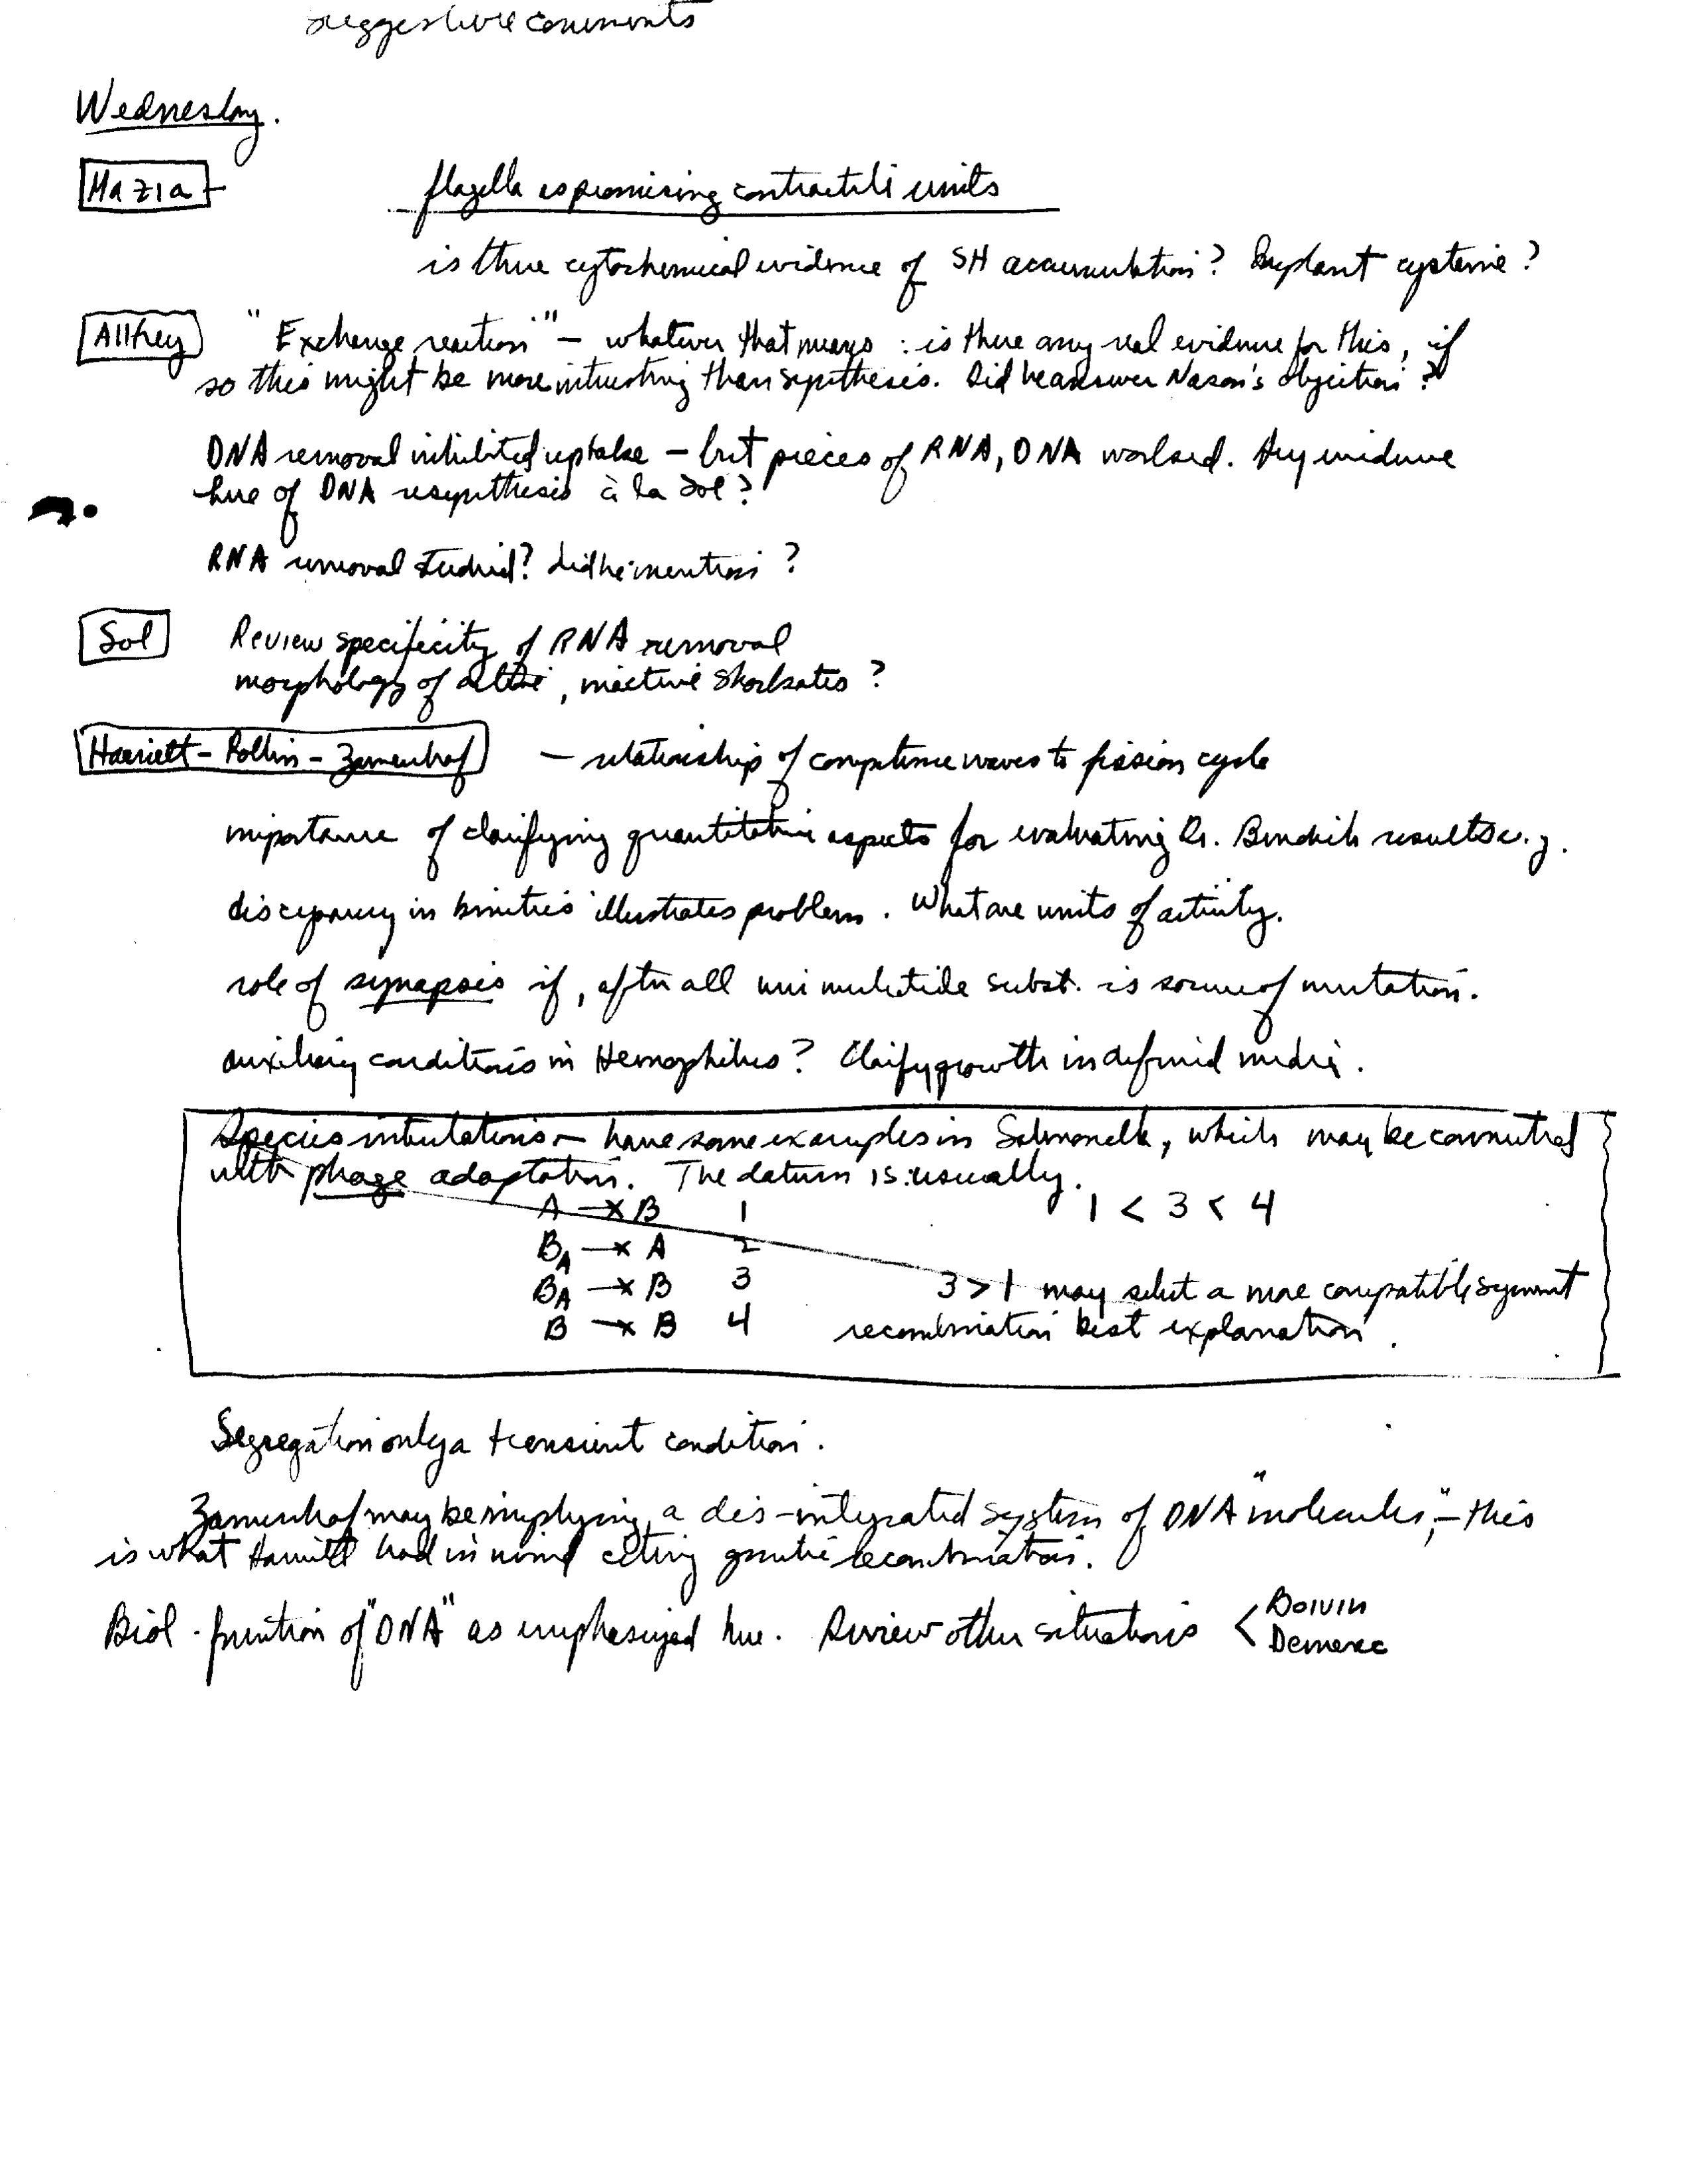 suggestive comments
Wednesday.
Mazia - flagella as promising contractile units
is there cytochemical evidence of SH accumulation? Implant cysteine?
Allfrey "Exchange reaction" - whatever that means : is there any real evidence for this, if
so this might be more interesting than synthesis. Did he answer Nason's objection?
DNA removal inhibited uptake - but pieces of RNA, DNA worked. Any evidence
here of DNA resynthesis à la Sol?
RNA removal studied? Did he mention?
Sol Review specificity of RNA removal
morphology of active, inactive sonicates?
Harriett - Rollin - Zamenhof - relationship of competence waves to fission cycle
importance of clarifying quantitative aspects for evaluating Dr. Bendich results e.g.
discrepancy in kinetics illustrates problem. What are units of activity.
role of synapsis if, after all uninucleotide subst. is source of mutation.
auxiliary conditions in Hemophilus? Clarify growth in defined media.
Species interrelations - have some examples in Salmonella, which may be connected
with phage adaptation. The datum is usually.
A —x B 1 1 < 3 < 4
B_A —x A 2
B_A —x B 3 3 > 1 may select a more compatible segment
B —x B 4 recombination best explanation.
Segregation only a transient condition.
Zamenhof may be implying a dis-integrated system of DNA "molecules," - this
is what Harriett had in mind citing genetic recombination.
Biol. function of "DNA" as emphasized here. Review other situations < Boivin
Demerec